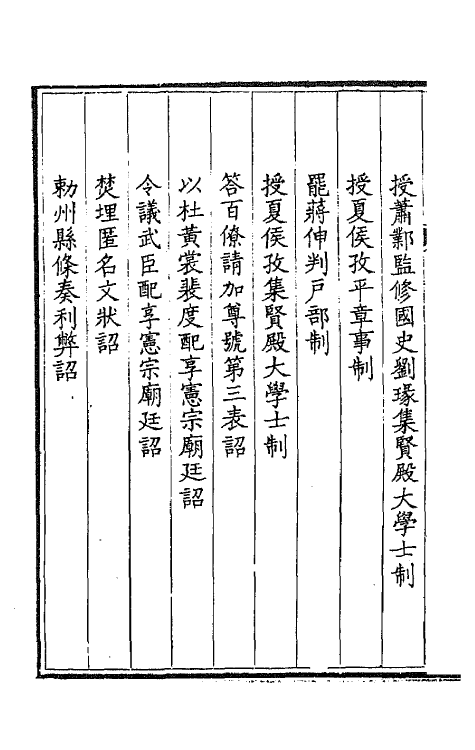 授蕭鄴監修國史劉瑑集賢殿大學士制
授夏侯孜平章事制
罷蔣伸判戶部制
授夏侯孜集賢殿大學士制
答百僚請加尊號第三表詔
以杜黃裳裴度配享憲宗廟廷詔
令議武臣配享憲宗廟廷詔
焚埋匿名文狀詔
勑州縣條奏利弊詔